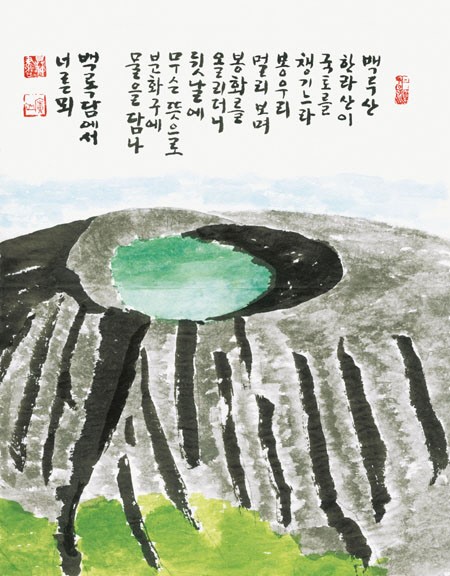 백두산
한라산이
국토를
챙기느라
봉우리
멀리 보며
봉화를
올리더니
뒷날에
무슨 뜻으로
분화구에
물을 담나
백록담에서
너른뫼